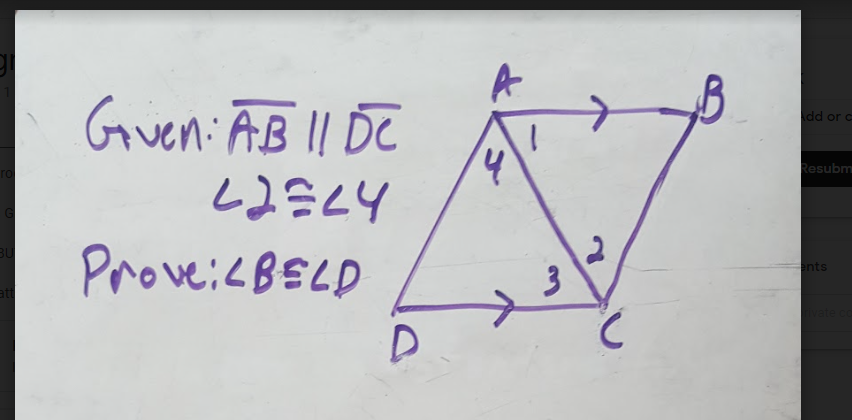 Given: AB || DC
∠2≅∠4
Prove: ∠B≅∠D
A
B
1
4
2
3
D
C
Add or c
Resubm
ents